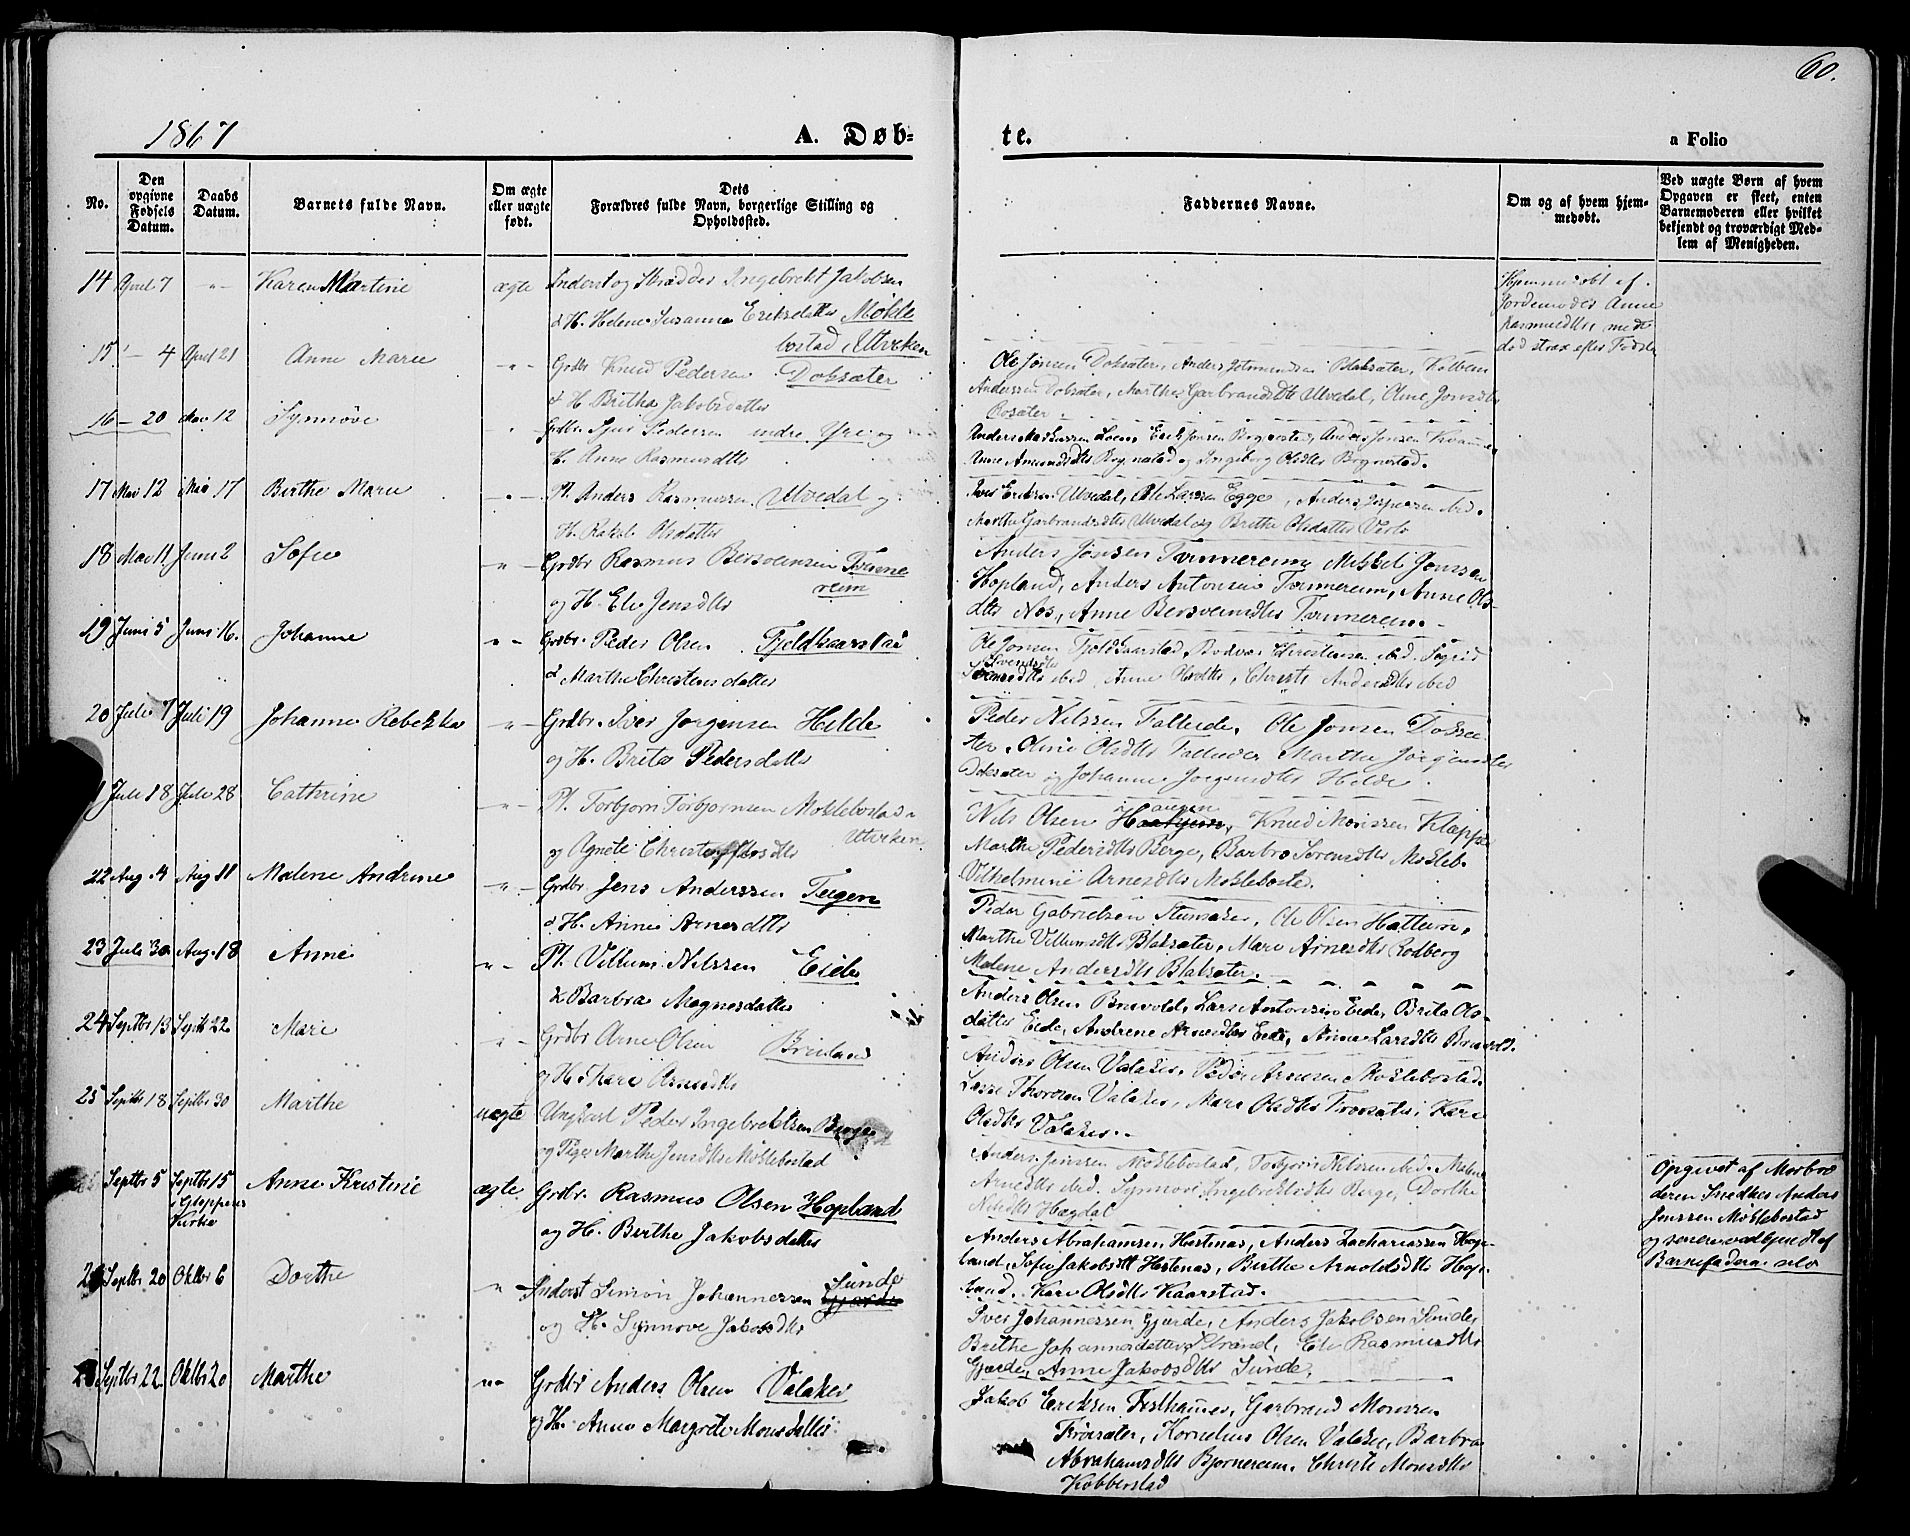 60.
1867
A. Døb-
te.
a Folio
No.
Den opgivne Fødsels Datum.
Daabs Datum.
Barnets fulde Navn.
Om ægte eller uægte født.
Dets Forældres fulde Navn, borgerlige Stilling og Opholdssted.
Faddernes Navne.
Om og af hvem hjem-
medøbt.
Ved uægte Børn af hvem
Opgaven er skeet, enten
Barnemoderen eller hvilket
bekjendt og troværdigt Med-
lem af Menigheden.
14 April 7 -"- Karen Martine ægte Inderst og Skrædder Ingebrekt Jakobsen
& H. Helene Susanna Eriksdatter Mokle
bostad, Utviken
Hjemmedøbt af
Jordemoder Anne
Rasmusdtr, med
død strax efter Fødsel
15 - 4 April 21 Anne Marie -"- Grdbr Knud Pedersen Doksæter
& H. Britha Jakobsdatter
Ole Jonsen Doksæter, Anders Blaksæter, Kolbein
Anderssen Doksæter, Marthe Garbrandsdtr Utvedal, Oline Jonsdtr
Rosæter.
16 - 20 Mai 12 Synnøve -"- Grdbr. Pedersen indre Yri og
H. Anne Rasmusdtr
Anders Loen, Erik Jonsen Bognestad, Anders Jonsen Kvamme
Anne Amundsdtr Bognestad og Ingeborg Olsdtr Bognestad.
17 Mai 12 Mai 17 Birthe Marie -"- Pl. Anders Rasmussen Utvedal og
H. Rakel Olsdatter
Iver Eriksen Utvedal, Ole Larsen Egge, Anders Jespersen ibid.
Marthe Garbrandsdtr Utvedal og Brithe Olsdatter
18 Mai 11 Juni 2 Sofie -"- Grdbr Rasmus Bersveinsen Tonne
reim
og H. Eli Jensdtr
Anders Jonsen Tonnereim, Mikkel Jonssen
Hopland, Anders Antonsen Tonnereim, Anne Ols-
dtr Nos, Anne Bersveinsdtr Tonnereim.
19 Juni 5 Juni 16. Johanne -"- Grdbr. Peder Olsen Fjeldkaarstad
& Marthe Christensdatter
Ole Jonsen Fjeldkaarstad, Bodvar Christensen ibid. Sigrid
Svendsdtr ibid, Anne Olsdtr, Christi Andersdtr ibid
20 Juli 7 Juli 19 Johanne Rebekka -"- Grdbr. Iver Jorgensen Hilde
og H. Brite Pedersdatter
Peder Nilssen Falleide, Ole Jonsen Doksæ
ter, Oline Olsdtr Falleide, Marthe Jørgensdtr
Doksæter og Johanne Jorgensdtr Hilde.
1 Juli 18 Juli 28 Cathrine -"- Pl. Torbjørn Torbjørnsen Moklebostad
Utviken
og Agnete Christoffersdtr
Nils Olsen Haugen, Knud Monssen Kloppe
Marthe Pedersdtr Berge, Barbro Sørensdtr Mokleb.
Vilhelmine Arnesdtr Moklebostad.
22 Aug. 4 Aug 11 Malene Andrine -"- Grdbr Jens Anderssen Teigen
& H. Anne Arnesdtr
Peder Gabrielsen Ole Olsen Hattum,
Marthe Villumsdtr Blaksæter, Mari Arnesdtr Rodberg
Malene Andersdtr Blaksæter.
23 Juli 30 Aug. 18 Anne -"- Pl. Villum Nilssen Eide
& Barbra Magnesdatter
Anders Olsen Brævold, Lars Antonsen Eide, Brita Ols-
datter Eide, Andrene Arnesdtr Eide, Anne Larsdtr Brævold.
24 Septbr 13 Septbr 22 Mari -"- Grdbr Arne Olsen Brenland
og H. Kari Arnesdtr
Anders Olsen Valaker, Peder Arnesen Moklebostad,
Lasse Thorsen Valaker, Mari Olsdtr Frøsæter, Kari
Olsdtr Valaker.
25 Septbr 18 Septbr 30 Marthe uægte Ungkarl Peder Ingebrektsen Berge
og Pige Marthe Jensdtr Moklebostad
Anders Jenssen Moklebostad, Torbjørn Nilssen ibid. Malene
Arnesdtr ibid. Synnøve Ingebrektsdtr Berge, Dorthe
Nilsdtr Hægdal
Opgivet af Morbro
deren Snedker Anders
Jenssen Moklebostad
og senere vedkjendt af
Barnefaderen selv
Septbr 5 Septbr 15 i Gloppens Kirke Anne Kristine ægte Grdbr. Rasmus Olsen Hopland
og H. Birthe Jakobsdatter
Anders Abrahamsen Hestenæs, Anders Zachariassen Hop-
land, Sofie Jakobsdtt Hestenæs, Brithe Arnoldsdtr Hop-
land, Kari Olsdtr Kaarstad.
Septbr 20 Oktbr 6 Dorthe " Inderst Simon Johannessen Sunde
og H. Synnove Jakobsdtr
Iver Johannessen Gjærde, Anders Jakobsen Sunde,
Brithe Johannesdatter Strand, Eli Rasmusdtr
Gjærde, Anne Jakobsdtr Sunde.
Septbr 22 Oktbr 20 Marthe -"- Grdbr Anders Olsen Valaker
og H. Anne Margrete Monsdatter
Jakob Eriksen Garbrand Monssen
Frøisæter, Kornelius Olsen Valaker, Barbra
Abrahamsdtr Bjørnereim, Christi Monsdtr
Kobberstad